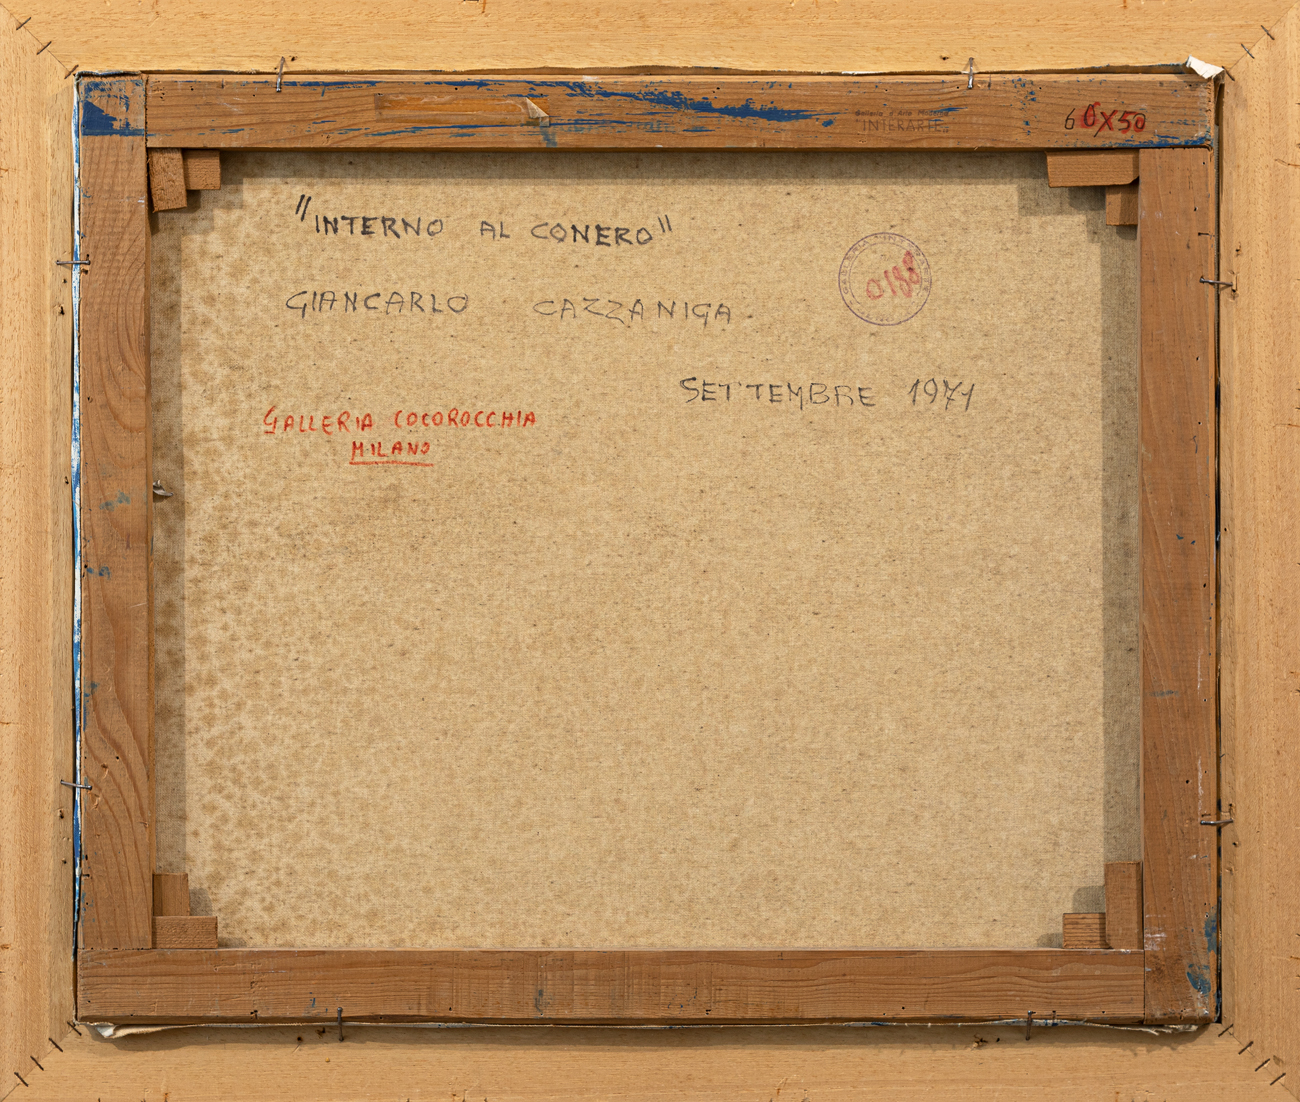 Galleria d'Arte Moderna
INTERARTE
60X50
"INTERNO AL CONERO"
0188
GIANCARLO CAZZANIGA.
SETTEMBRE 1971
GALLERIA COCOROCCHIA
MILANO